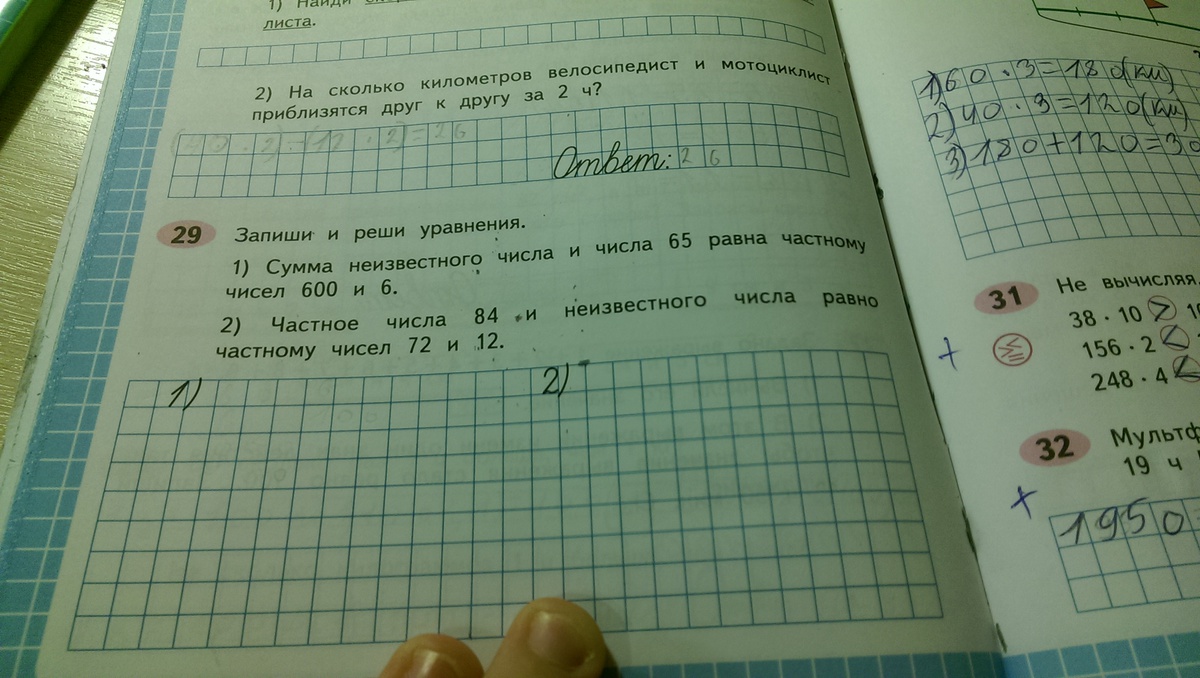 1) Найди
листа.
2) На сколько километров велосипедист и мотоциклист
приблизятся друг к другу за 2 ч?
(40 · 2) - (12 · 2) = 26
Ответ: 26
29 Запиши и реши уравнения.
1) Сумма неизвестного числа и числа 65 равна частному
чисел 600 и 6.
2) Частное числа 84 и неизвестного числа равно
частному чисел 72 и 12.
1) 2)
1) 60 · 3 = 180 (км)
2) 40 · 3 = 120 (км)
3) 180 + 120 = 30
31 Не вычисляя.
38 · 10 > 1
156 · 2 <
248 · 4 <
+
32 Мультф
19 ч
+
1950